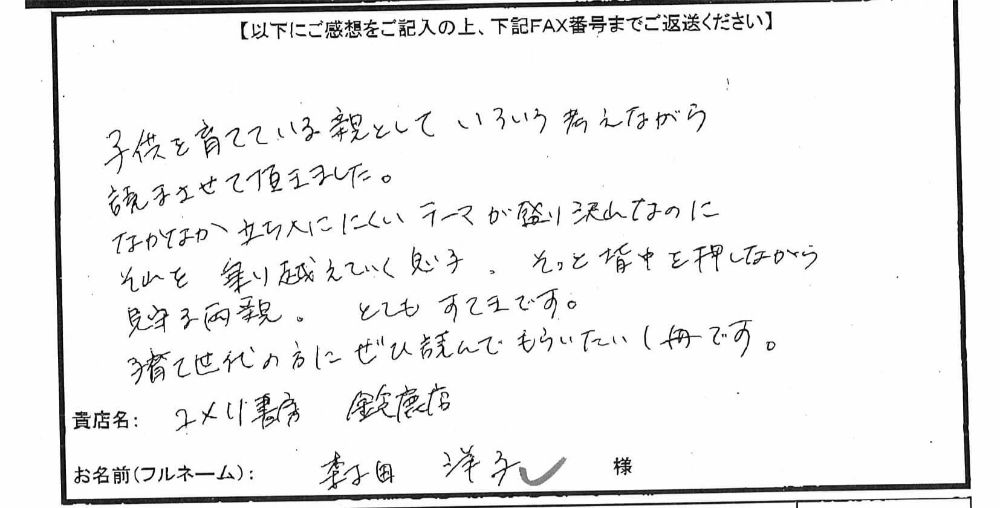 【以下にご感想をご記入の上、下記FAX番号までご返送ください】
子供を育てている親として いろいろ考えながら
読まさせて頂きました。
なかなか 立ち にくい テーマが盛り沢山なのに
それを 乗り越えていく息子、そっと背中を押しながら
見守る両親。 とても すてきです。
子育て世代の方に ぜひ読んで もらいたい1冊です。
貴店名: 書房 鈴鹿店
お名前(フルネーム): 田 洋子 様